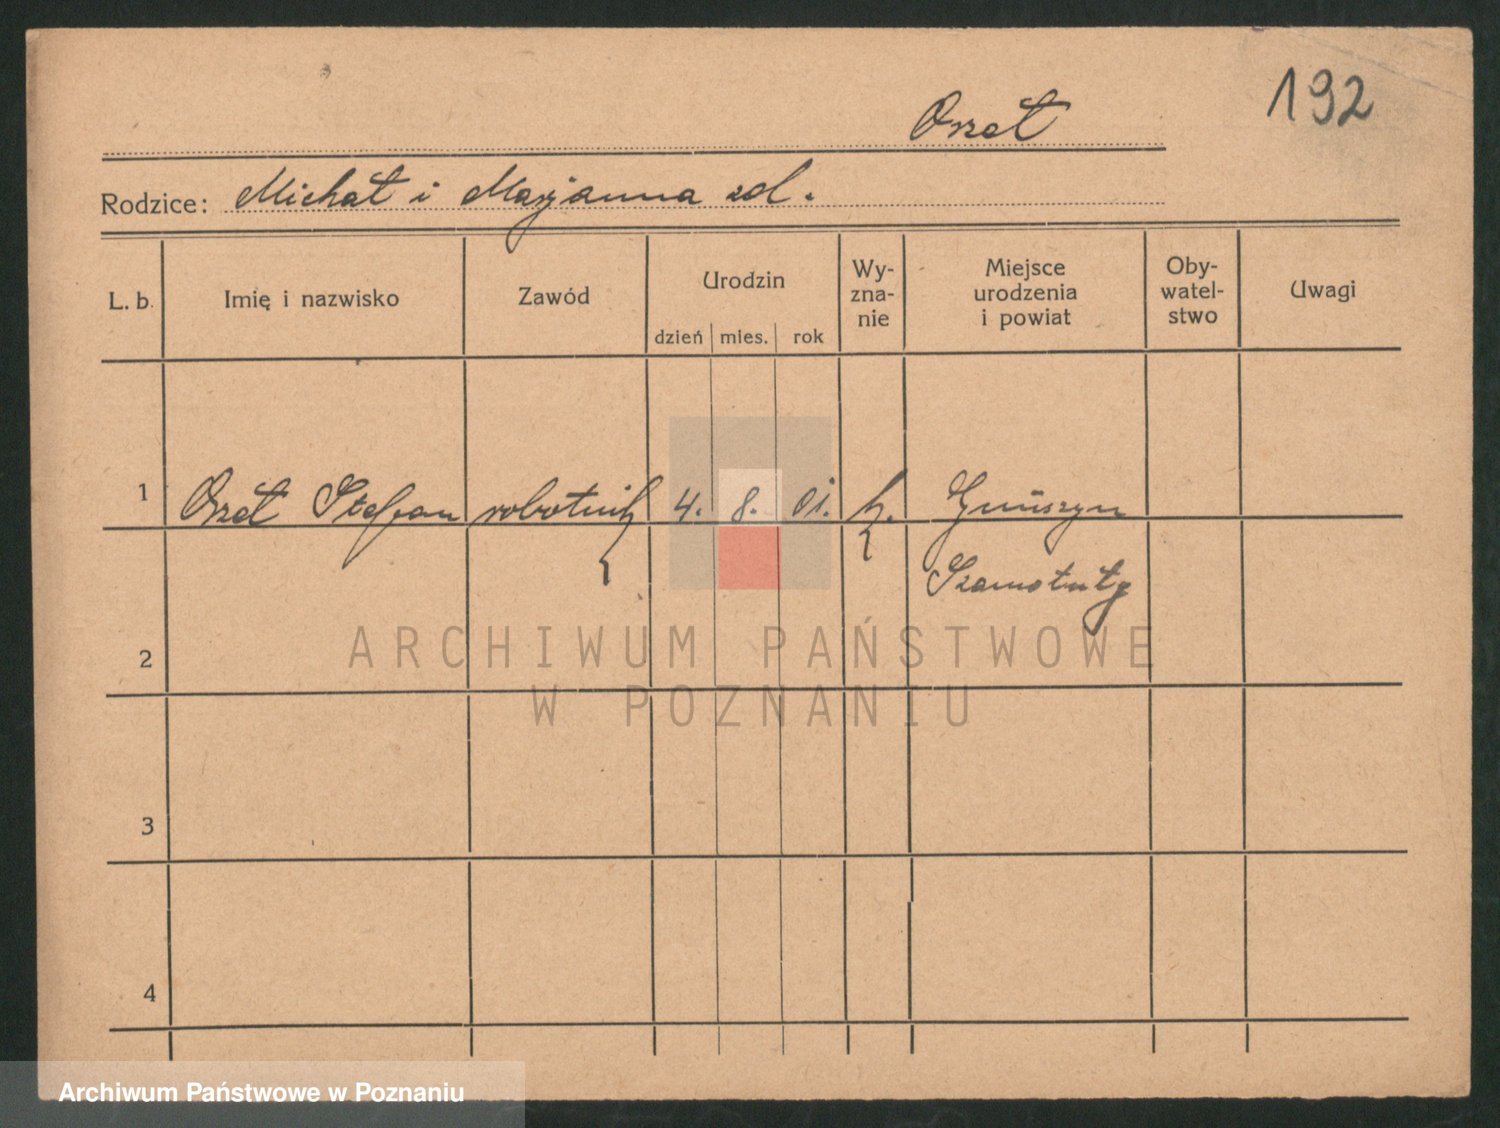 192
Orzeł
Rodzice: Michał i Marjanna zd.
L. b. Imię i nazwisko Zawód Urodzin Wy-zna-nie Miejsce urodzenia i powiat Oby-watel-stwo Uwagi
dzień mies. rok
1 Orzeł Stefan robotnik 4. 8. 01. k.
Szamotuły
2
3
4
ARCHIWUM PAŃSTWOWE
W POZNANIU
Archiwum Państwowe w Poznaniu